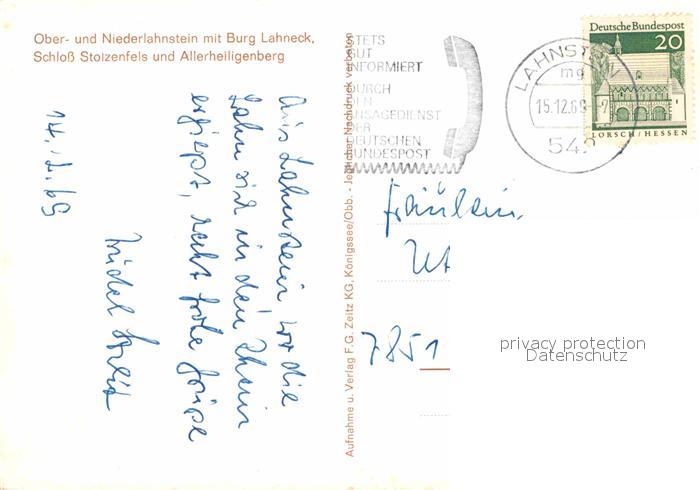 Ober- und Niederlahnstein mit Burg Lahneck,
Schloß Stolzenfels und Allerheiligenberg
Aus Lahnstein wo die
Lahn sich in den Rhein
ergiesst, recht frohe Grüsse
14.12.69
Aufnahme u. Verlag F.G. Zeitz KG, Königssee/Obb. - Jeglicher Nachdruck verboten
STETS
GUT
INFORMIERT
DURCH
DEN
ANSAGEDIENST
DER
DEUTSCHEN
BUNDESPOST
LAHNSTEIN
mg
15.12.69
542
Deutsche Bundespost
20
LORSCH/HESSEN
Fräulein
7851
privacy protection
Datenschutz